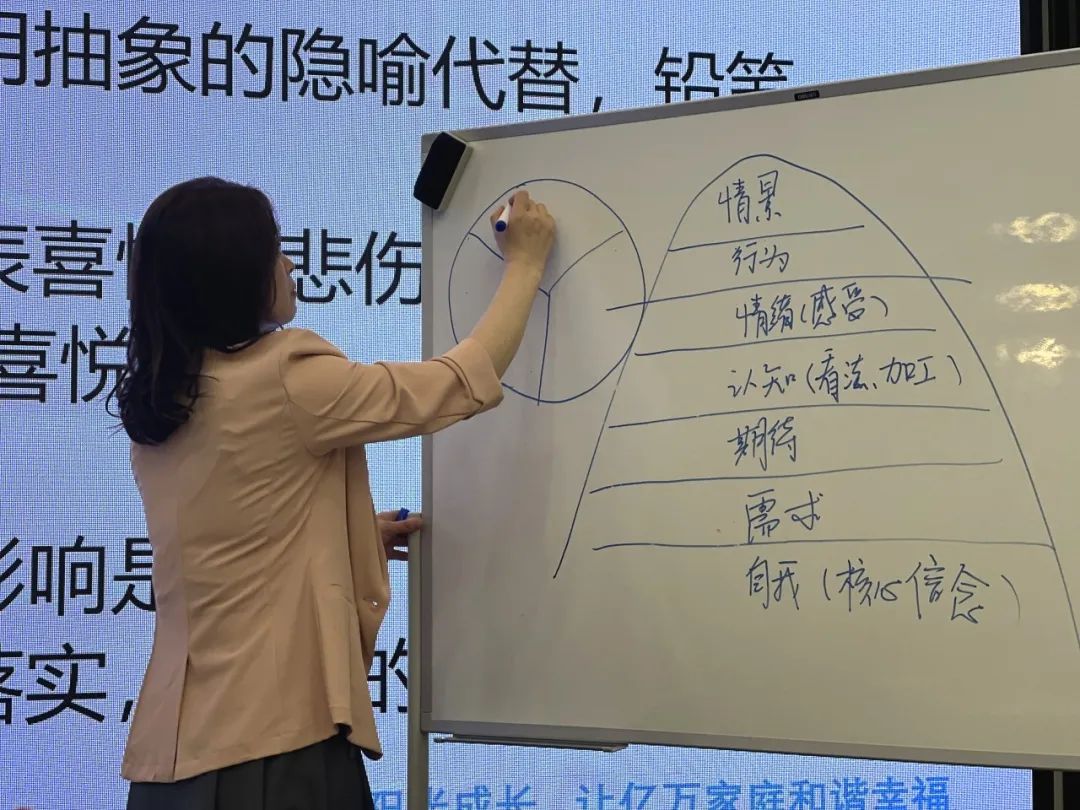 用抽象的隐喻代替，铅笔
表喜悦 悲伤
喜悦
影响是
落实， 的
情景
行为
情绪(感受)
认知(看法、加工)
期待
需求
自我(核心信念)
阳光成长 让亿万家庭和谐幸福